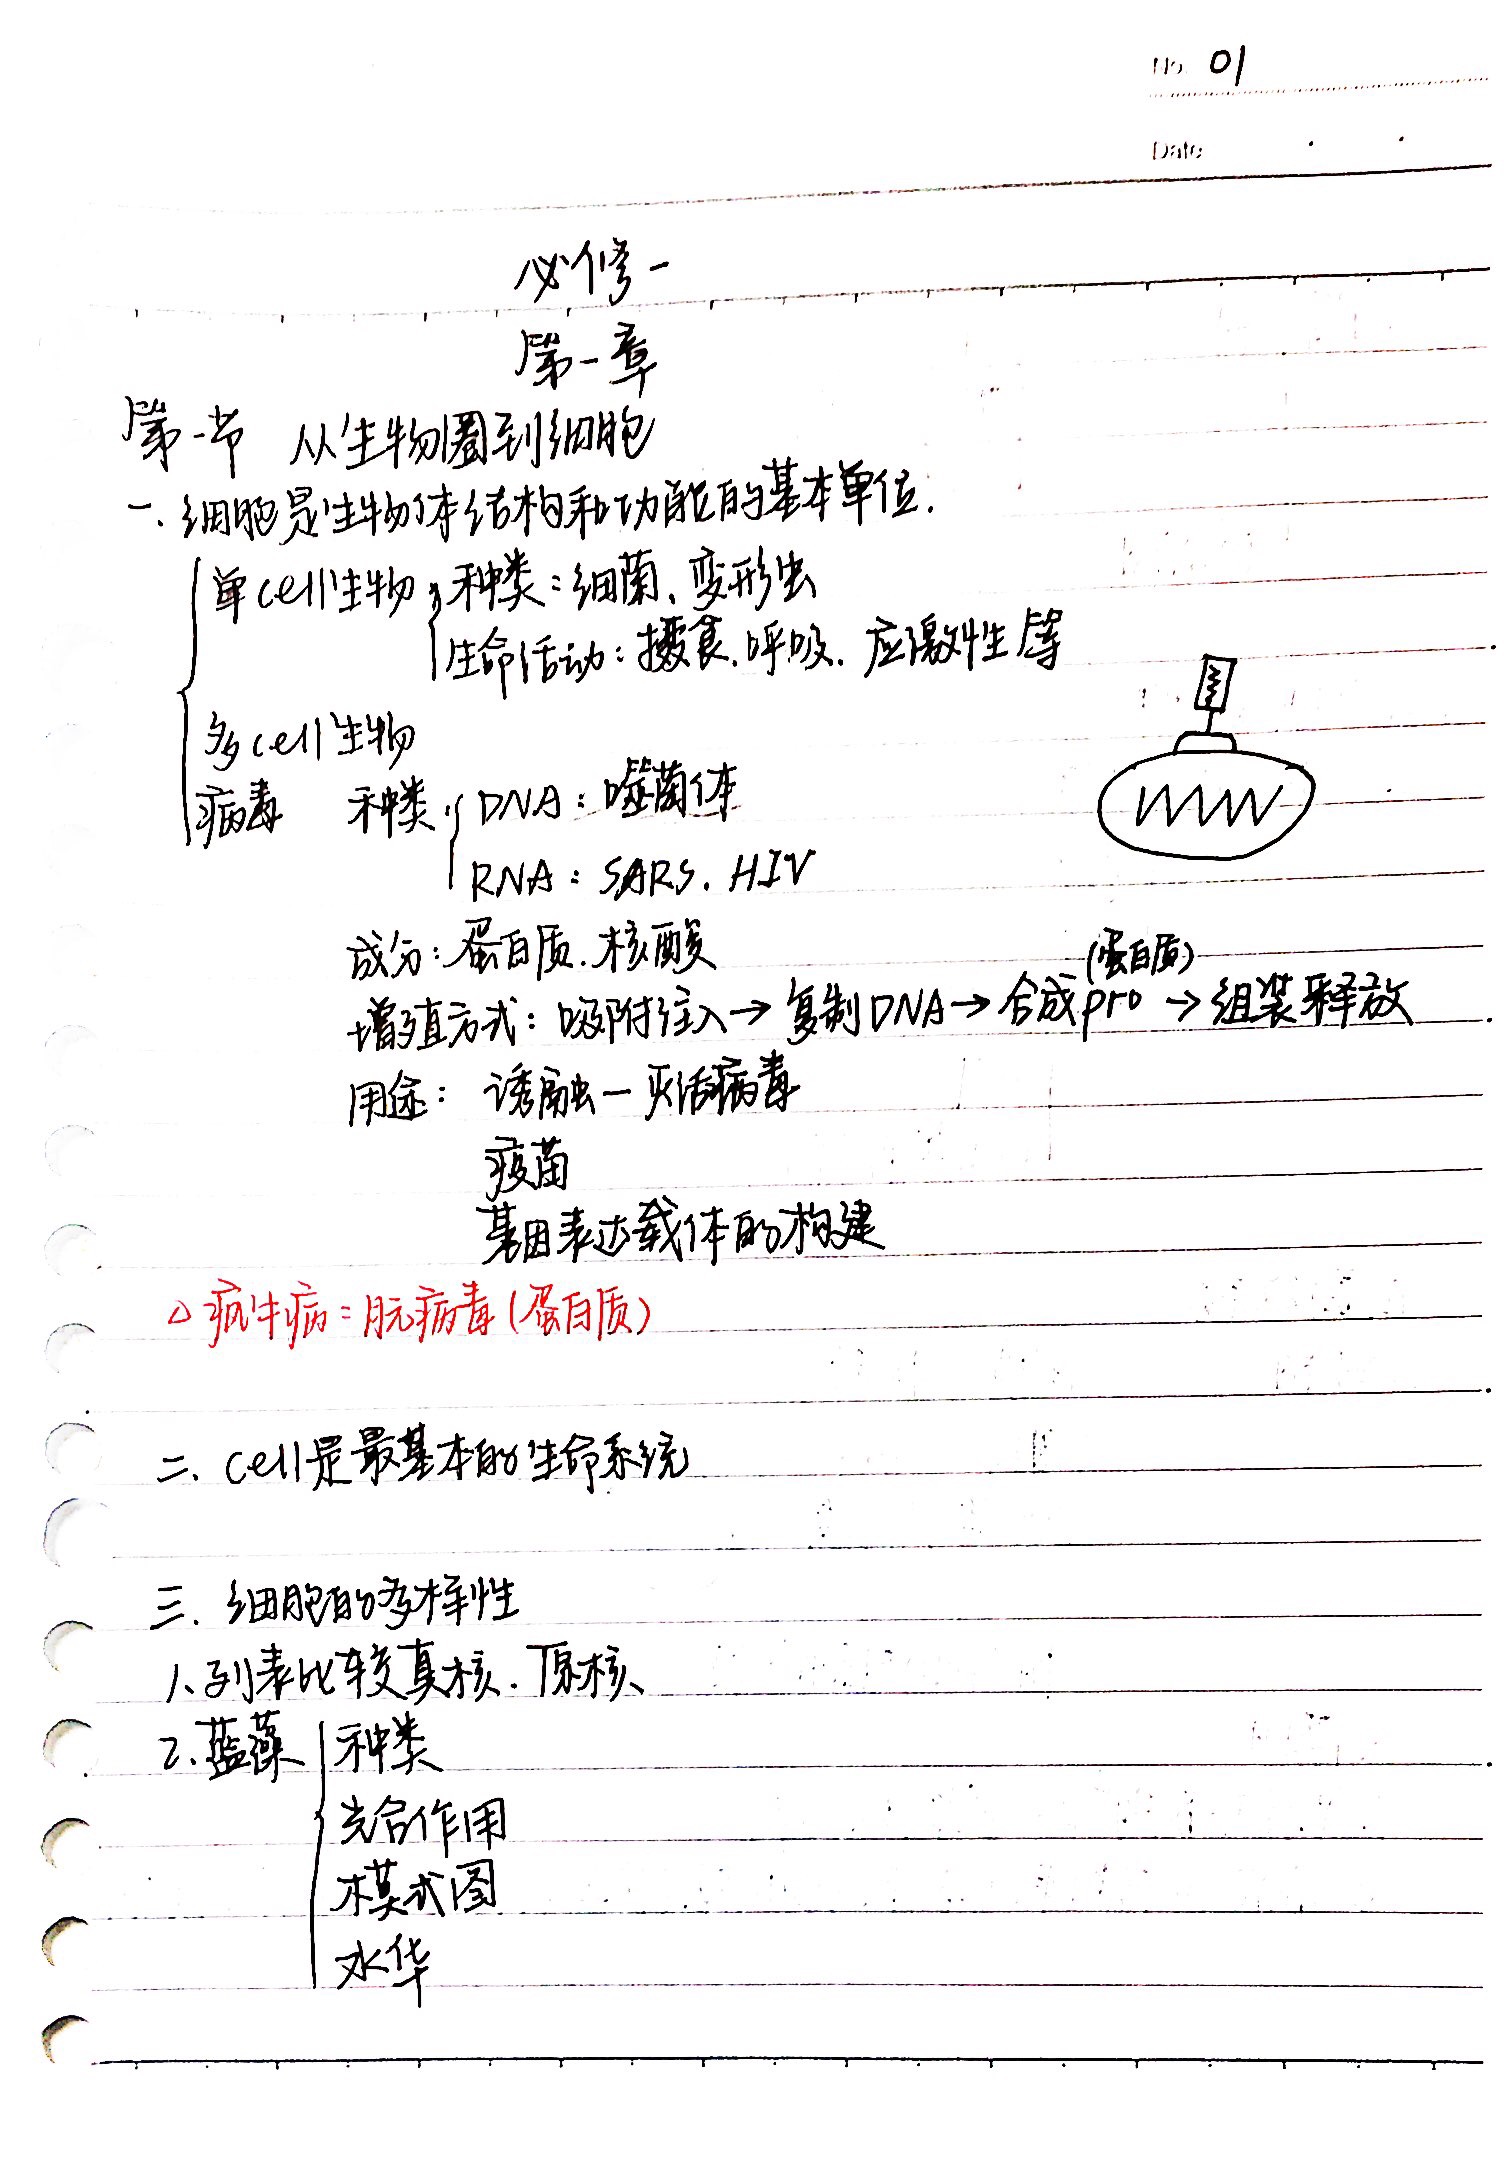 No. 01
Date
必修一
第一章
第一节 从生物圈到细胞
一、细胞是生物体结构和功能的基本单位.
单cell生物 种类:细菌、变形虫
生命活动:摄食、呼吸、应激性等
多cell生物
病毒 种类 DNA:噬菌体
RNA:SARS、HIV
成分:蛋白质、核酸
(蛋白质)
增殖方式:吸附注入→复制DNA→合成pro→组装释放
用途: 诱融—灭活病毒
疫苗
基因表达载体的构建
△疯牛病=朊病毒(蛋白质)
二、cell是最基本的生命系统
三、细胞的多样性
1、列表比较真核、原核、
2、蓝藻 种类
光合作用
模式图
水华